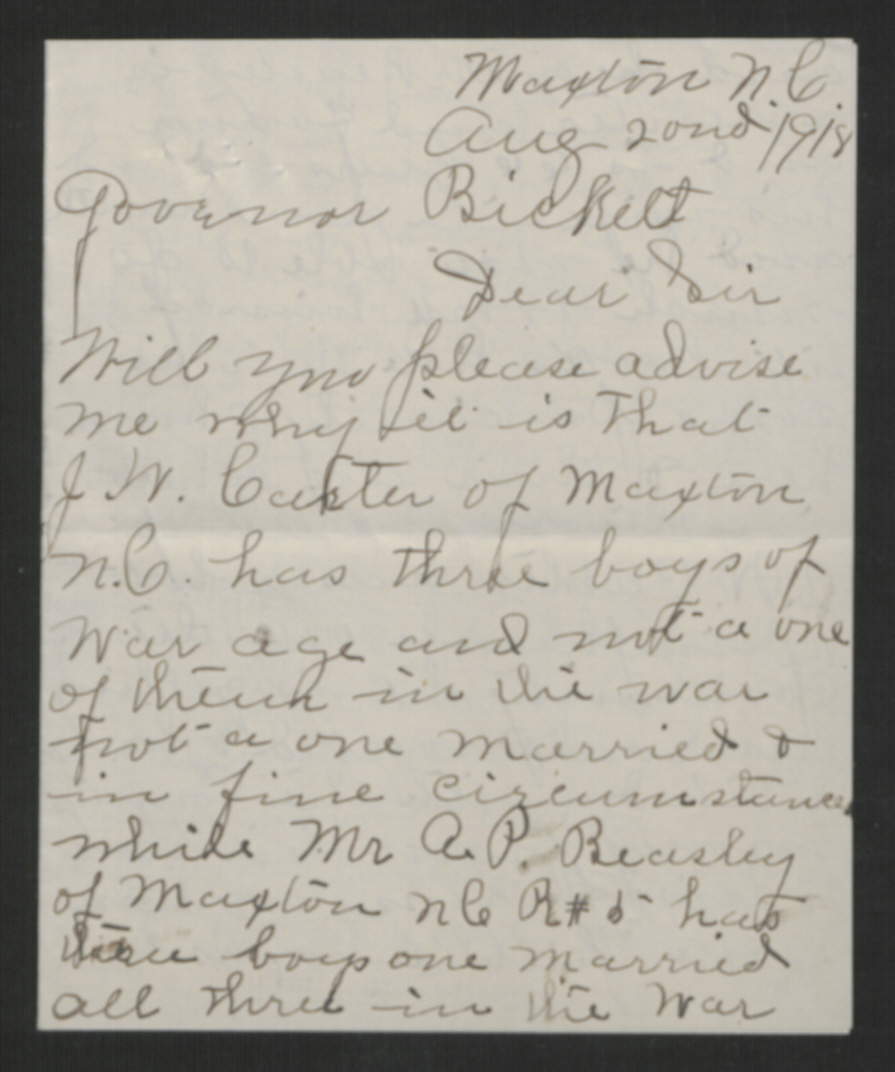 Maxton N.C.
Aug 20nd 1918
Governor Bickett
Dear Sir
Will you please advise
me why it is that
J W. Carter of Maxton
N.C. has three boys of
War age and not a one
of them in the war
not a one married &
in fine circumstances
while Mr A. P. Beasley
of Maxton NC R#5 has
three boys one married
all three in the War